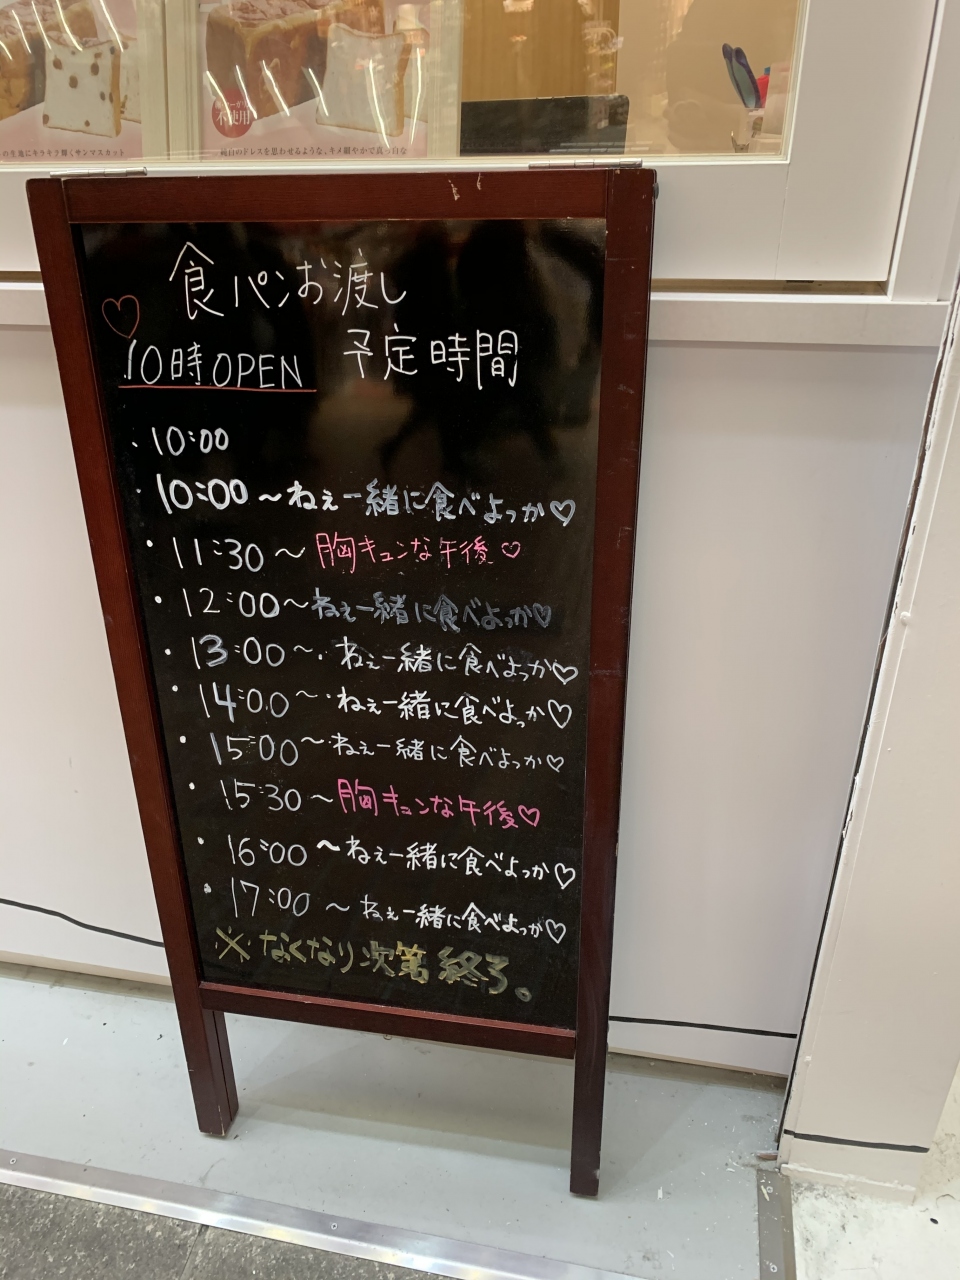 不使用
の生地にキラキラ輝くサンマスカット
純白のドレスを思わせるような、キメ細やかで真っ白な
食パンお渡し
予定時間
10時OPEN
・10:00
・10:00 〜ねぇ一緒に食べよっか♡
・11:30 〜 胸キュンな午後♡
・12:00〜ねぇ一緒に食べよっか♡
・13:00〜・ねぇ一緒に食べよっか♡
・14:00〜・ねぇ一緒に食べよっか♡
・15:00〜・ねぇ一緒に食べよっか♡
・15:30〜胸キュンな午後♡
・16:00 〜ねぇ一緒に食べよっか♡
・17:00 〜ねぇ一緒に食べよっか♡
※なくなり次第終了。